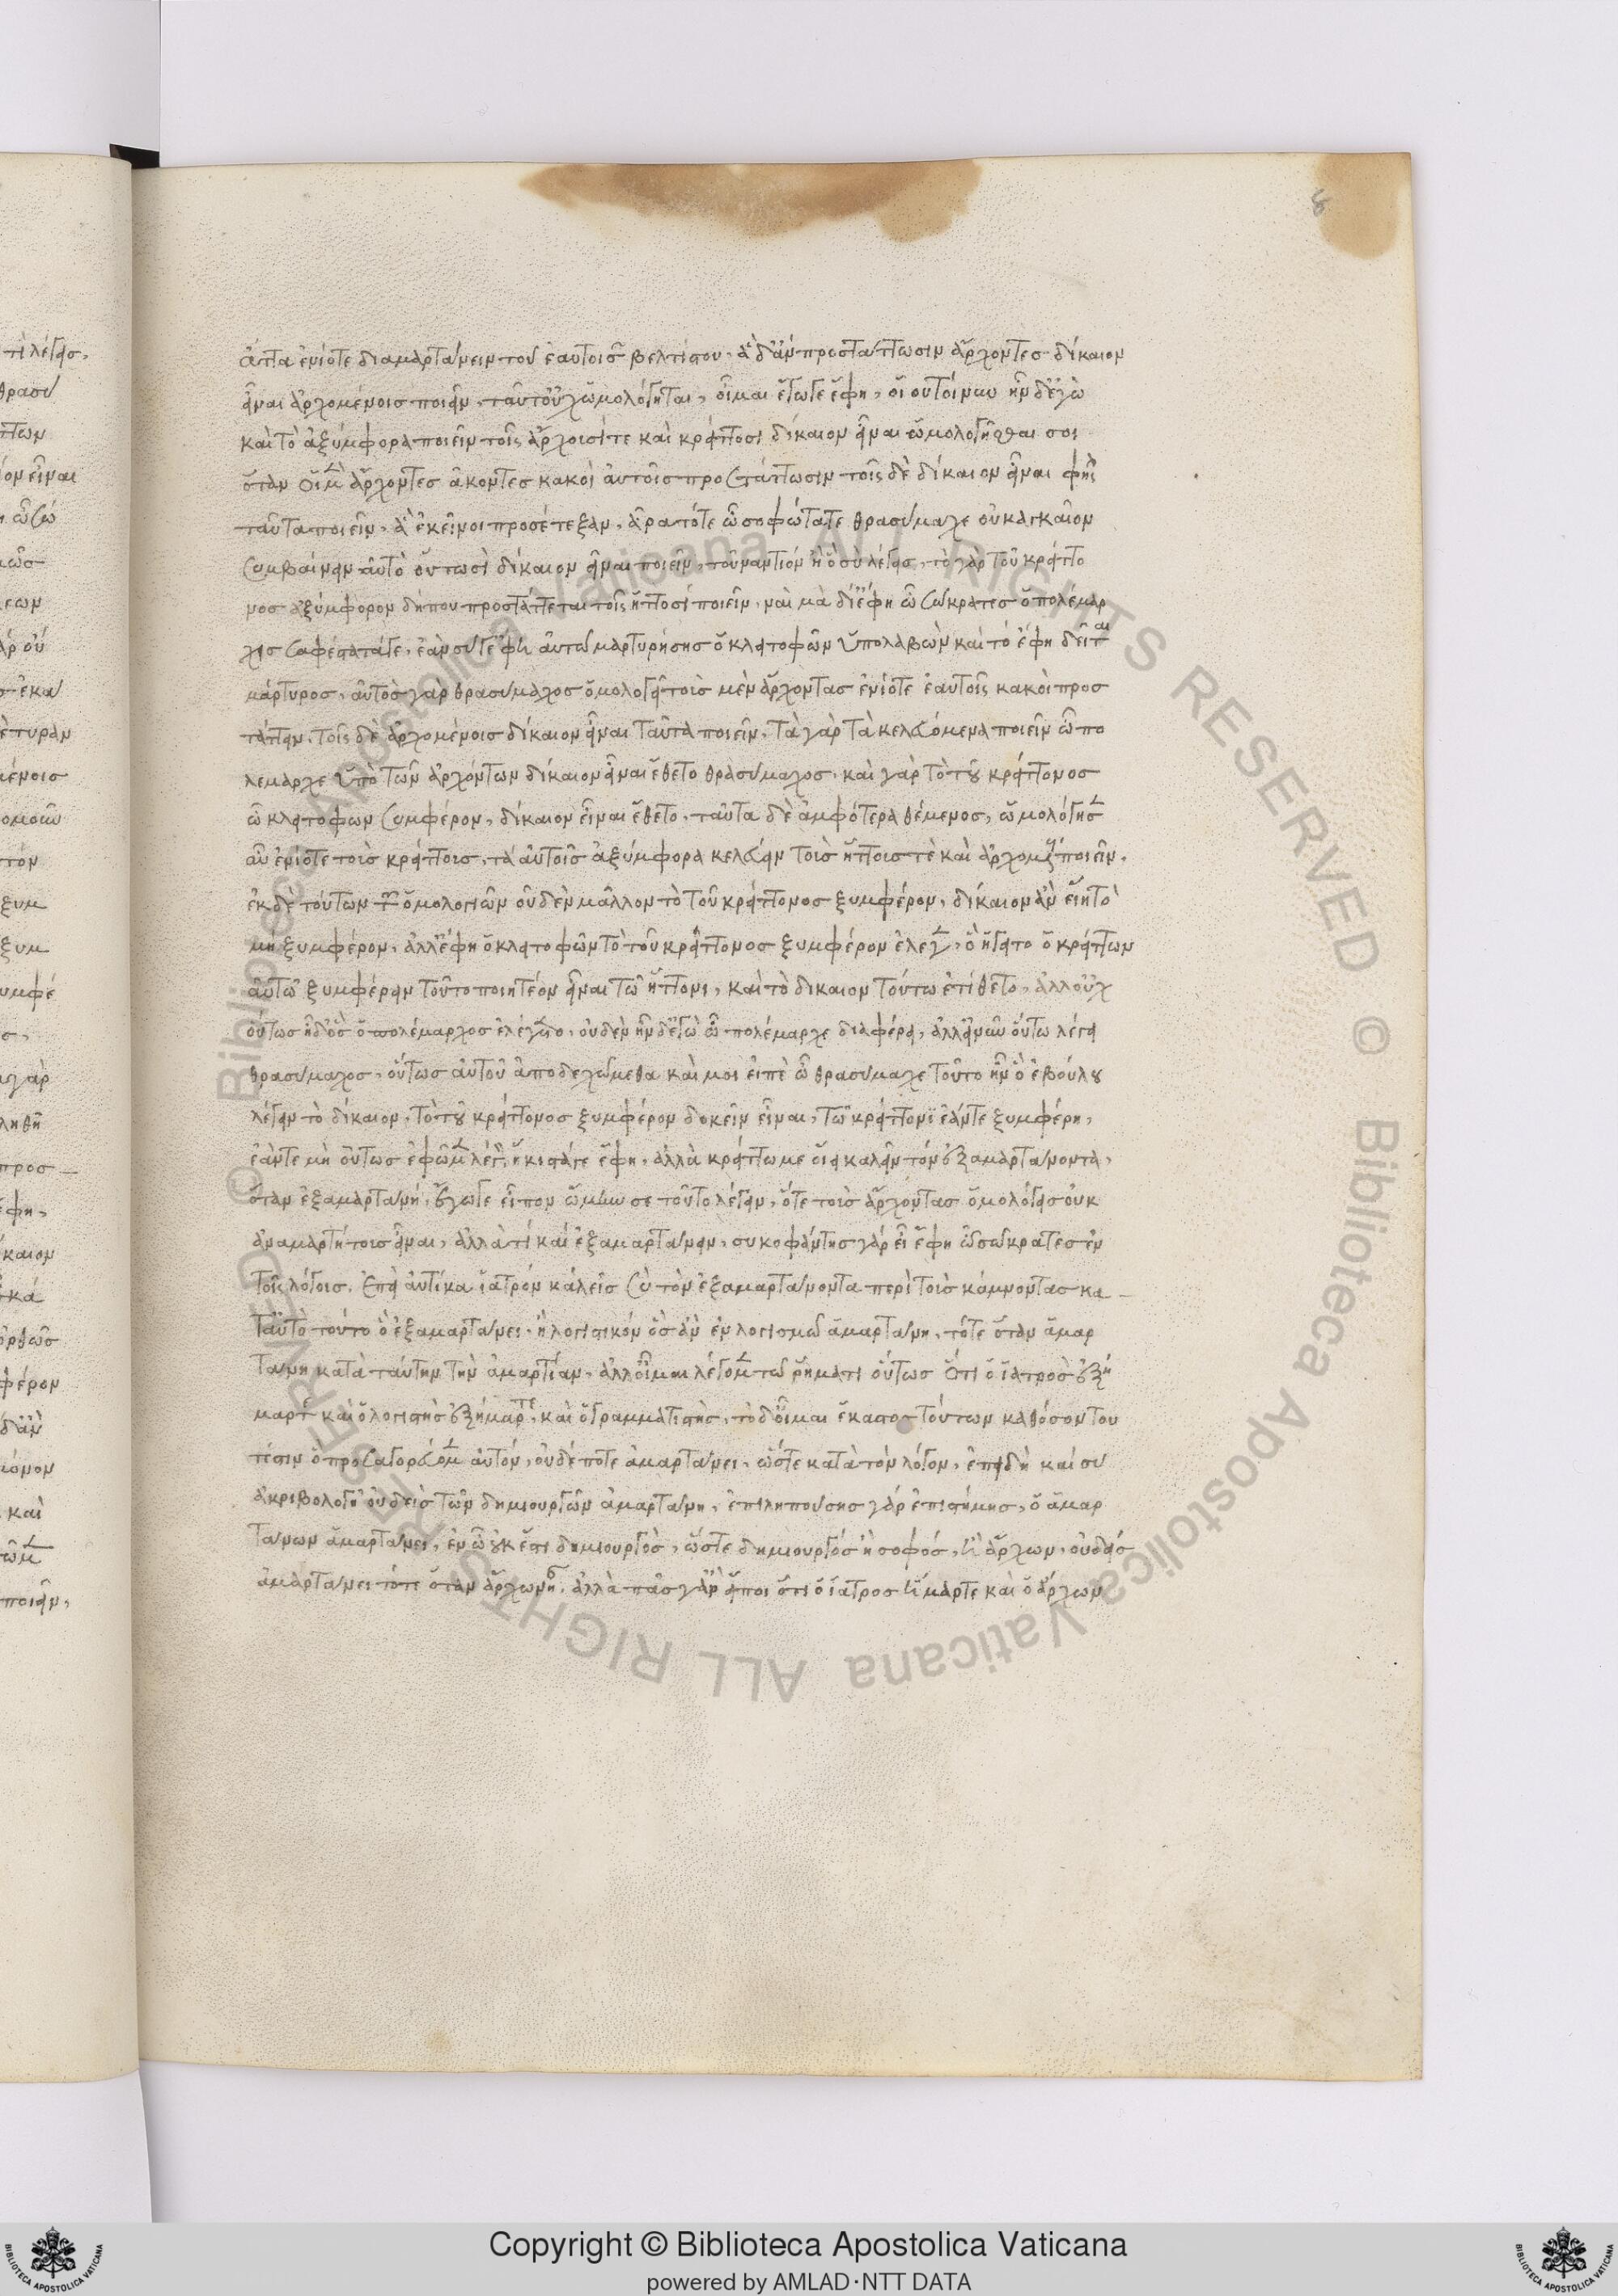 ἅττα ἐνίοτε διαμαρτάνειν τοῦ ἑαυτοῖς βελτίστου, ἃ δ' ἂν προστάττωσιν ἄρχοντες δίκαιον
εἶναι ἀρχομένοις ποιεῖν, ταῦτ' οὐχ ὡμολόγηται, οἶμαι ἔγωγε ἔφη, οἴου τοίνυν ἦν δ' ἐγὼ
καὶ τὸ ἀξύμφορα ποιεῖν τοῖς ἄρχουσί τε καὶ κρείττοσι δίκαιον εἶναι ὡμολογῆσθαι σοι
ὅταν οἱ μὲν ἄρχοντες ἄκοντες κακὰ αὑτοῖς προστάττωσιν τοῖς δὲ δίκαιον εἶναι φῂς
ταῦτα ποιεῖν, ἃ ἐκεῖνοι προσέταξαν, ἆρα τότε ὦ σοφώτατε θρασύμαχε οὐκ ἀναγκαῖον
συμβαίνειν αὐτὸ οὑτωσὶ δίκαιον εἶναι ποιεῖν, τοὐναντίον ἢ ὃ σὺ λέγεις, τὸ γὰρ τοῦ κρείττο
νος ἀξύμφορον δήπου προστάττεται τοῖς ἥττοσι ποιεῖν, ναὶ μὰ δί' ἔφη ὦ σώκρατες ὁ πολέμαρ
χος σαφέστατά γε, ἐὰν σύ γε ἔφη αὐτῷ μαρτυρήσῃς ὁ κλειτοφῶν ὑπολαβὼν καὶ τί ἔφη δεῖται
μάρτυρος, αὐτὸς γὰρ θρασύμαχος ὁμολογεῖ τοὺς μὲν ἄρχοντας ἐνίοτε ἑαυτοῖς κακὰ προσ
τάττειν, τοῖς δὲ ἀρχομένοις δίκαιον εἶναι ταῦτα ποιεῖν, τὰ γὰρ τὰ κελευόμενα ποιεῖν ὦ πο
λέμαρχε ὑπὸ τῶν ἀρχόντων δίκαιον εἶναι ἔθετο θρασύμαχος, καὶ γὰρ τὸ τοῦ κρείττονος
ὦ κλειτοφῶν συμφέρον, δίκαιον εἶναι ἔθετο, ταῦτα δὲ ἀμφότερα θέμενος, ὡμολόγησεν
αὖ ἐνίοτε τοὺς κρείττους, τὰ αὑτοῖς ἀξύμφορα κελεύειν τοὺς ἥττους τε καὶ ἀρχομένους ποιεῖν,
ἐκ δὲ τούτων τῶν ὁμολογιῶν οὐδὲν μᾶλλον τὸ τοῦ κρείττονος ξυμφέρον, δίκαιον ἂν εἴη τὸ
μὴ ξυμφέρον, ἀλλ' ἔφη ὁ κλειτοφῶν τὸ τοῦ κρείττονος ξυμφέρον ἔλεγεν, ὃ ἡγεῖτο ὁ κρείττων
αὑτῷ ξυμφέρειν τοῦτο ποιητέον εἶναι τῷ ἥττονι, καὶ τὸ δίκαιον τοῦτο ἐτίθετο, ἀλλ' οὐχ
οὕτως ἦ δ' ὃς ὁ πολέμαρχος ἐλέγετο, οὐδὲν ἦν δ' ἐγὼ ὦ πολέμαρχε διαφέρει, ἀλλ' εἰ νῦν οὕτω λέγει
θρασύμαχος, οὕτως αὐτοῦ ἀποδεχώμεθα καί μοι εἰπὲ ὦ θρασύμαχε τοῦτο ἦν ὃ ἐβούλου
λέγειν τὸ δίκαιον, τὸ τοῦ κρείττονος ξυμφέρον δοκεῖν εἶναι, τῷ κρείττονι ἐάντε ξυμφέρῃ,
ἐάντε μὴ οὕτως ἐφῶμεν λέγειν, ἥκιστά γε ἔφη, ἀλλὰ κρείττω με οἴει καλεῖν τὸν ἐξαμαρτάνοντα,
ὅταν ἐξαμαρτάνῃ, ἔγωγε εἶπον ᾤμην σε τοῦτο λέγειν, ὅτε τοὺς ἄρχοντας ὁμολόγεις οὐκ
ἀναμαρτήτους εἶναι, ἀλλά τι καὶ ἐξαμαρτάνειν, συκοφάντης γὰρ εἶ ἔφη ὦ σώκρατες ἐν
τοῖς λόγοις, ἐπεὶ αὐτίκα ἰατρὸν καλεῖς σὺ τὸν ἐξαμαρτάνοντα περὶ τοὺς κάμνοντας κα
τ' αὐτὸ τοῦτο ὃ ἐξαμαρτάνει, ἢ λογιστικόν ὃς ἂν ἐν λογισμῷ ἁμαρτάνῃ, τότε ὅταν ἁμαρ
τάνῃ κατὰ ταύτην τὴν ἁμαρτίαν, ἀλλ' οἶμαι λέγομεν τῷ ῥήματι οὕτως ὅτι ὁ ἰατρὸς ἐξή
μαρτε καὶ ὁ λογιστὴς ἐξήμαρτε, καὶ ὁ γραμματιστής, τὸ δ' οἶμαι ἕκαστος τούτων καθόσον του
τέστιν ὃ προσαγορεύομεν αὐτόν, οὐδέποτε ἁμαρτάνει, ὥστε κατὰ τὸν λόγον, ἐπειδὴ καὶ σὺ
ἀκριβολογῇ οὐδεὶς τῶν δημιουργῶν ἁμαρτάνῃ, ἐπιλιπούσης γὰρ ἐπιστήμης, ὁ ἁμαρ
τάνων ἁμαρτάνει, ἐν ᾧ οὐκ ἔστι δημιουργός, ὥστε δημιουργὸς ἢ σοφός, ἢ ἄρχων, οὐδεὶς
ἁμαρτάνει τότε ὅταν ἄρχων ᾖ, ἀλλὰ πᾶς γ' ἂν εἴποι ὅτι ὁ ἰατρὸς ἥμαρτε καὶ ὁ ἄρχων
Copyright © Biblioteca Apostolica Vaticana
powered by AMLAD·NTT DATA